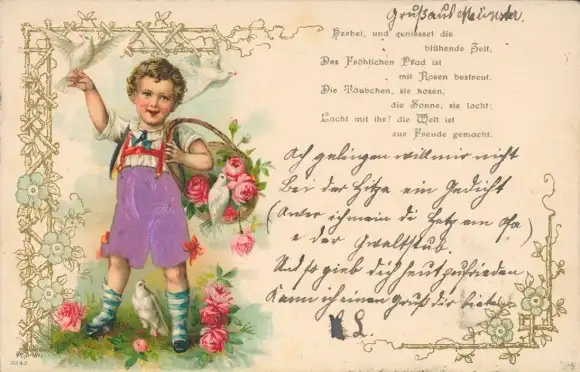 Gruß aus Münster.
Herbei, und geniesset die
blühende Zeit,
Des Fröhlichen Pfad ist
mit Rosen bestreut.
Die Täubchen, sie kosen,
die Sonne, sie lacht;
Lacht mit ihr! die Welt ist
zur Freude gemacht.
Ach gelingen will mir nicht
Bei der Hitze ein Gedicht
ich mein
der
Und so gieb dich heut zufrieden
Kann ich einen Gruß dir bieten
L.